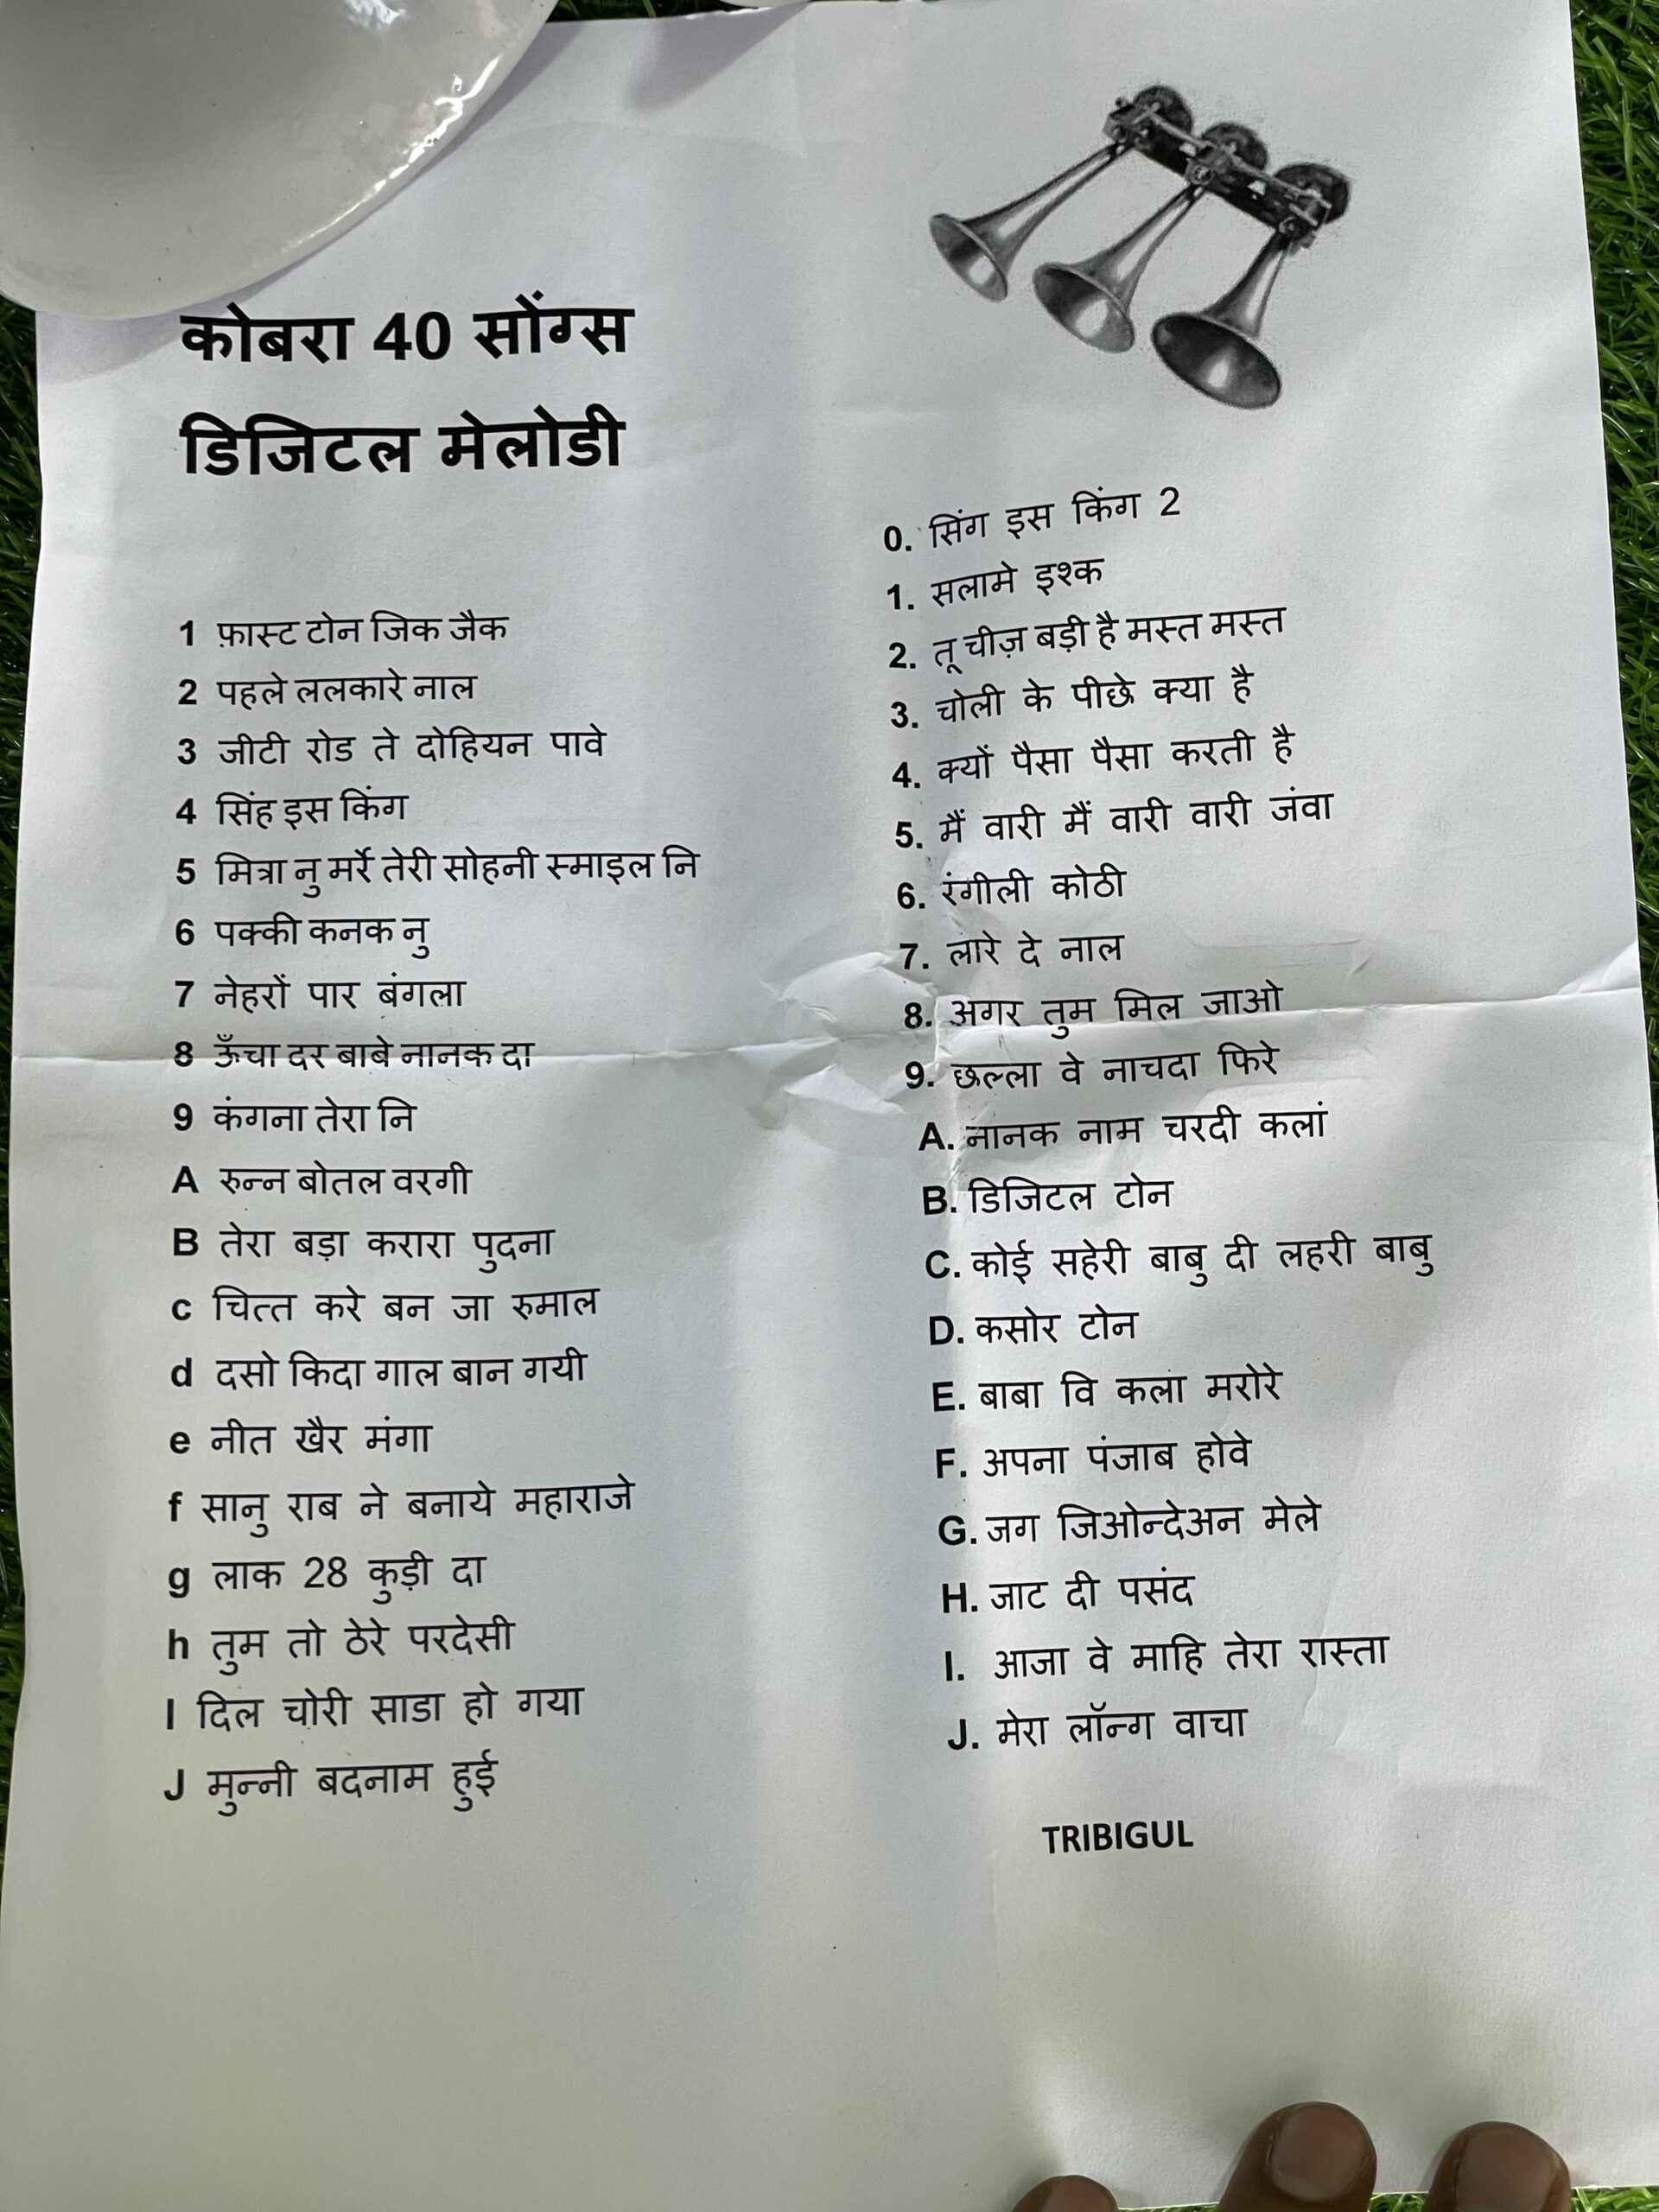 कोबरा 40 सोंग्स
डिजिटल मेलोडी
1 फ़ास्ट टोन जिक जैक
2 पहले ललकारे नाल
3 जीटी रोड ते दोहियन पावे
4 सिंह इस किंग
5 मित्रा नु मर्रे तेरी सोहनी स्माइल नि
6 पक्की कनक नु
7 नेहरों पार बंगला
8 ऊँचा दर बाबे नानक दा
9 कंगना तेरा नि
A रुन्न बोतल वरगी
B तेरा बड़ा करारा पुदना
c चित्त करे बन जा रुमाल
d दसो किदा गाल बान गयी
e नीत खैर मंगा
f सानु राब ने बनाये महाराजे
g लाक 28 कुड़ी दा
h तुम तो ठेरे परदेसी
I दिल चोरी साडा हो गया
J मुन्नी बदनाम हुई
0. सिंग इस किंग 2
1. सलामे इश्क
2. तू चीज़ बड़ी है मस्त मस्त
3. चोली के पीछे क्या है
4. क्यों पैसा पैसा करती है
5. मैं वारी मैं वारी वारी जंवा
6. रंगीली कोठी
7. लारे दे नाल
8. अगर तुम मिल जाओ
9. छल्ला वे नाचदा फिरे
A. नानक नाम चरदी कलां
B. डिजिटल टोन
C. कोई सहेरी बाबु दी लहरी बाबु
D. कसोर टोन
E. बाबा वि कला मरोरे
F. अपना पंजाब होवे
G. जग जिओन्देअन मेले
H. जाट दी पसंद
I. आजा वे माहि तेरा रास्ता
J. मेरा लॉन्ग वाचा
TRIBIGUL